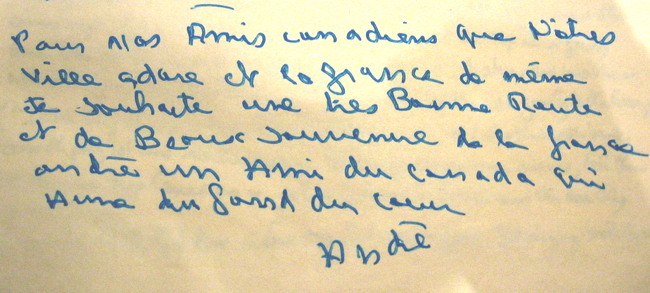 Pour nos Amis canadiens que Nôtres
Ville adore et la france de même
Je souhaite une tres Bonne Route
et de Beoux souvenue de la france
andrē un Ami du canada qui
Aime du fond du coeur
André